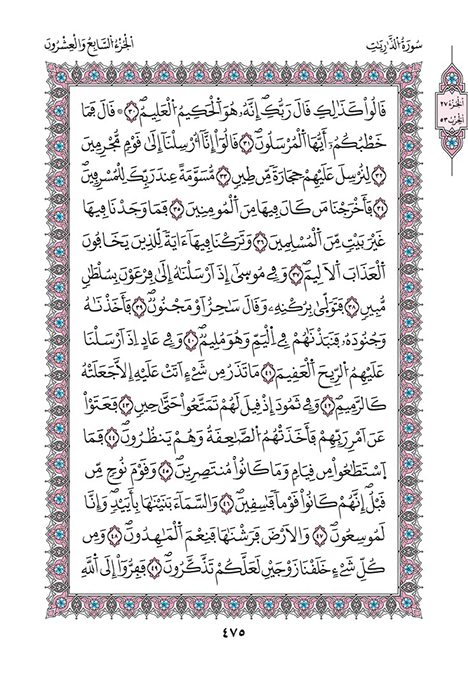 سُورَةُ الذَّارِيَٰتِ
الجُزءُ السَّابِعُ وَالعِشْرُونَ
الجزء ٢٧
الحزب ٥٣
قَالُواْ كَذَٰلِكِ قَالَ رَبُّكِ إِنَّهُۥ هُوَ اَلْحَكِيمُ اُلْعَلِيمُۖ ٣٠ ۞ قَالَ فَمَا
خَطْبُكُمُۥٓ أَيُّهَا اَلْمُرْسَلُونَۖ ٣١ قَالُوٓاْ إِنَّآ أُرْسِلْنَآ إِلَىٰ قَوْمٖ مُّجْرِمِينَ
٣٢ لِنُرْسِلَ عَلَيْهِمْ حِجَارَةٗ مِّن طِينٖ ٣٣ مُّسَوَّمَةً عِندَ رَبِّكَ لِلْمُسْرِفِينَۖ
٣٤ فَأَخْرَجْنَا مَن كَانَ فِيهَا مِنَ اَلْمُومِنِينَۖ ٣٥ فَمَا وَجَدْنَا فِيهَا
غَيْرَ بَيْتٖ مِّنَ اَلْمُسْلِمِينَۖ ٣٦ وَتَرَكْنَا فِيهَآ ءَايَةٗ لِّلذِينَ يَخَافُونَ
اَلْعَذَابَ اَلَالِيمَۖ ٣٧ وَفِي مُوسَىٰٓ إِذَ ارْسَلْنَٰهُ إِلَىٰ فِرْعَوْنَ بِسُلْطَٰنٖ
مُّبِينٖۖ ٣٨ فَتَوَلَّىٰ بِرُكْنِهِۦ وَقَالَ سَٰحِرٌ اَوْ مَجْنُونٞۖ ٣٩ فَأَخَذْنَٰهُ
وَجُنُودَهُۥ فَنَبَذْنَٰهُمْ فِي اِلْيَمِّ وَهُوَ مُلِيمٞۖ ٤٠ وَفِي عَادٍ اِذَ ارْسَلْنَا
عَلَيْهِمُ اُلرِّيحَ اَلْعَقِيمَ ٤١ مَا تَذَرُ مِن شَےْءٍ اَتَتْ عَلَيْهِ إِلَّا جَعَلَتْهُ
كَالرَّمِيمِۖ ٤٢ وَفِي ثَمُودَ إِذْ قِيلَ لَهُمْ تَمَتَّعُواْ حَتَّىٰ حِينٖۖ ٤٣ فَعَتَوْاْ
عَنَ اَمْرِ رَبِّهِمْ فَأَخَذَتْهُمُ اُلصَّٰعِقَةُ وَهُمْ يَنظُرُونَۖ ٤٤ فَمَا
اَسْتَطَٰعُواْ مِن قِيَامٖ وَمَا كَانُواْ مُنتَصِرِينَۖ ٤٥ وَقَوْمَ نُوحٖ مِّن
قَبْلُۖ إِنَّهُمْ كَانُواْ قَوْمٗا فَٰسِقِينَۖ ٤٦ وَالسَّمَآءَ بَنَيْنَٰهَا بِأَيْيْدٖ وَإِنَّا
لَمُوسِعُونَۖ ٤٧ وَالَارْضَ فَرَشْنَٰهَا فَنِعْمَ اَلْمَٰهِدُونَۖ ٤٨ وَمِن
كُلِّ شَےْءٍ خَلَقْنَا زَوْجَيْنِ لَعَلَّكُمْ تَذَّكَّرُونَۖ ٤٩ فَفِرُّوٓاْ إِلَى اَللَّهِ
٤٧٥